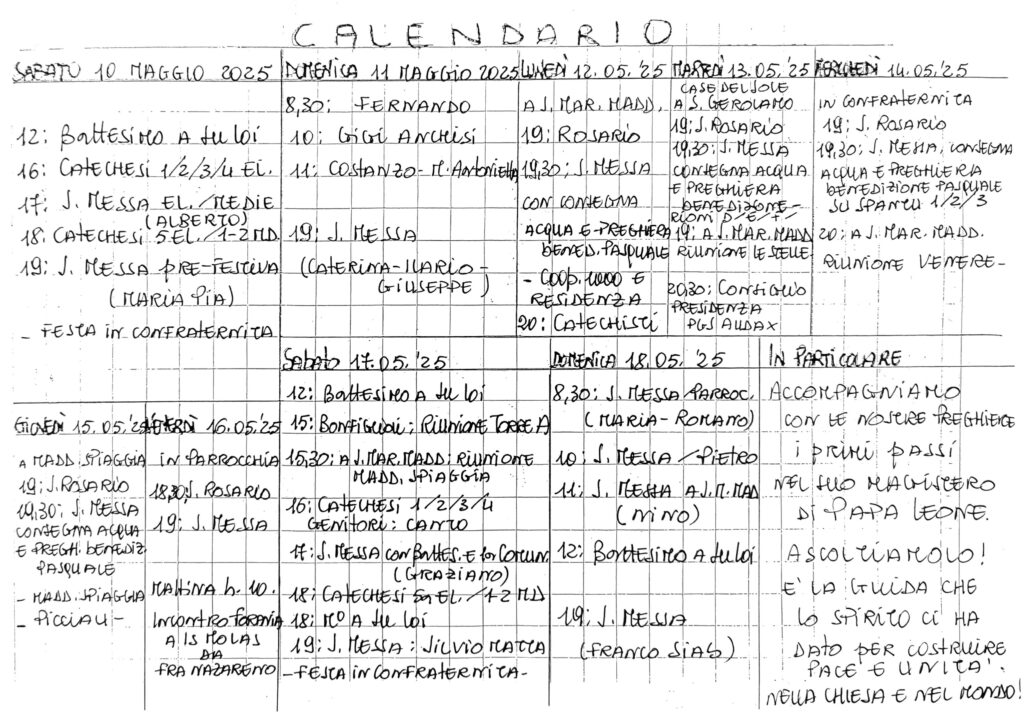 CALENDARIO
SABATO 10 MAGGIO 2025
12: Battesimo A su Loi
16: CATECHESI 1/2/3/4 EL.
17: S. MESSA EL./MEDIE
(ALBERTO)
18: CATECHESI 5 EL./1-2 MD
19: S. MESSA PRE-FESTIVA
(MARIA PIA)
- FESTA IN CONFRATERNITA
DOMENICA 11 MAGGIO 2025
8,30: FERNANDO
10: GIGI ANCHISI
11: COSTANZO - M. Antonietta
19: S. MESSA
(CATERINA - ILARIO -
GIUSEPPE)
LUNEDÌ 12.05.'25
A S. MAR. MADD.
19: ROSARIO
19,30: S. MESSA
CON CONSEGNA
ACQUA E PREGHIERA
BENED. PASQUALE
- COOP. E
RESIDENZA
20: CATECHISTI
MARTEDÌ 13.05.'25
CASE DEL SOLE
A S. GEROLAMO
19: S. ROSARIO
19,30: S. MESSA
CONSEGNA ACQUA
E PREGHIERA
BENEDIZIONE -
RIONI D/E/F/
19: A S. MAR. MADD
RIUNIONE LE STELLE
20,30: CONSIGLIO
PRESIDENZA
PGS AUDAX
MERCOLEDÌ 14.05.'25
IN CONFRATERNITA
19: S. ROSARIO
19,30: S. MESSA, CONSEGNA
ACQUA E PREGHIERA
BENEDIZIONE PASQUALE
SU SPANTU 1/2/3
20: A S. MAR. MADD.
RIUNIONE VENERE -
GIOVEDÌ 15.05.'25
A MADD. SPIAGGIA
19: S. ROSARIO
19,30: S. MESSA
CONSEGNA ACQUA
E PREGH. BENEDIZ
PASQUALE
- MADD. SPIAGGIA
- PICCIAU -
VENERDÌ 16.05.'25
IN PARROCCHIA
18,30 S. ROSARIO
19: S. MESSA
MATTINA h. 10
INCONTRO FORANIA
A IS MOLAS
DA
FRA NAZARENO
SABATO 17.05.'25
12: Battesimo A su Loi
15: BONFIGLIOLI: RIUNIONE TORRE A
15,30: A S. MAR. MADD: RIUNIONE
MADD. SPIAGGIA
16: CATECHESI 1/2/3/4
GENITORI: CANTO
17: S. MESSA CON BATTES. E COMUN.
(GRAZIANO)
18: CATECHESI 5a EL./1-2 MD
18: Mº A su Loi
19: S. MESSA: SILVIO MATTA
- FESTA IN CONFRATERNITA -
DOMENICA 18.05.'25
8,30: S. MESSA PARROC.
(MARIA - ROMANO)
10: S. MESSA / PIETRO
11: S. MESSA A S. M. MAD
(NINO)
12: Battesimo A su Loi
19: S. MESSA
(FRANCO SIAS)
IN PARTICOLARE
ACCOMPAGNIAMO
CON LE NOSTRE PREGHIERE
I PRIMI PASSI
NEL SUO MAGISTERO
DI PAPA LEONE.
ASCOLTIAMOLO!
E' LA GUIDA CHE
LO SPIRITO CI HA
DATO PER COSTRUIRE
PACE E UNITA'.
NELLA CHIESA E NEL MONDO!